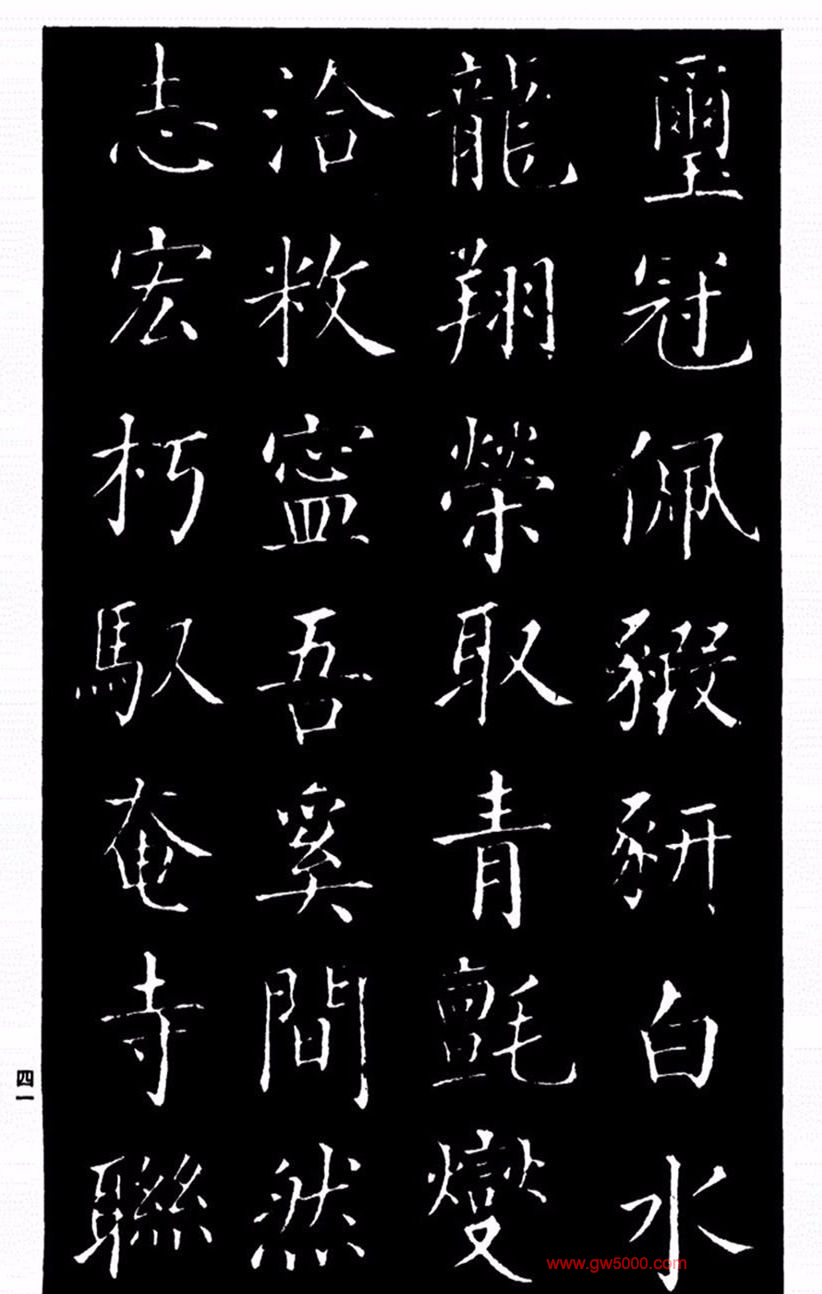 璽冠佩豭豣白水
龍翔榮取青氈燮
洽敉寍吾奚間然
志宏朽馭奄寺聯
四一
www.gw5000.com